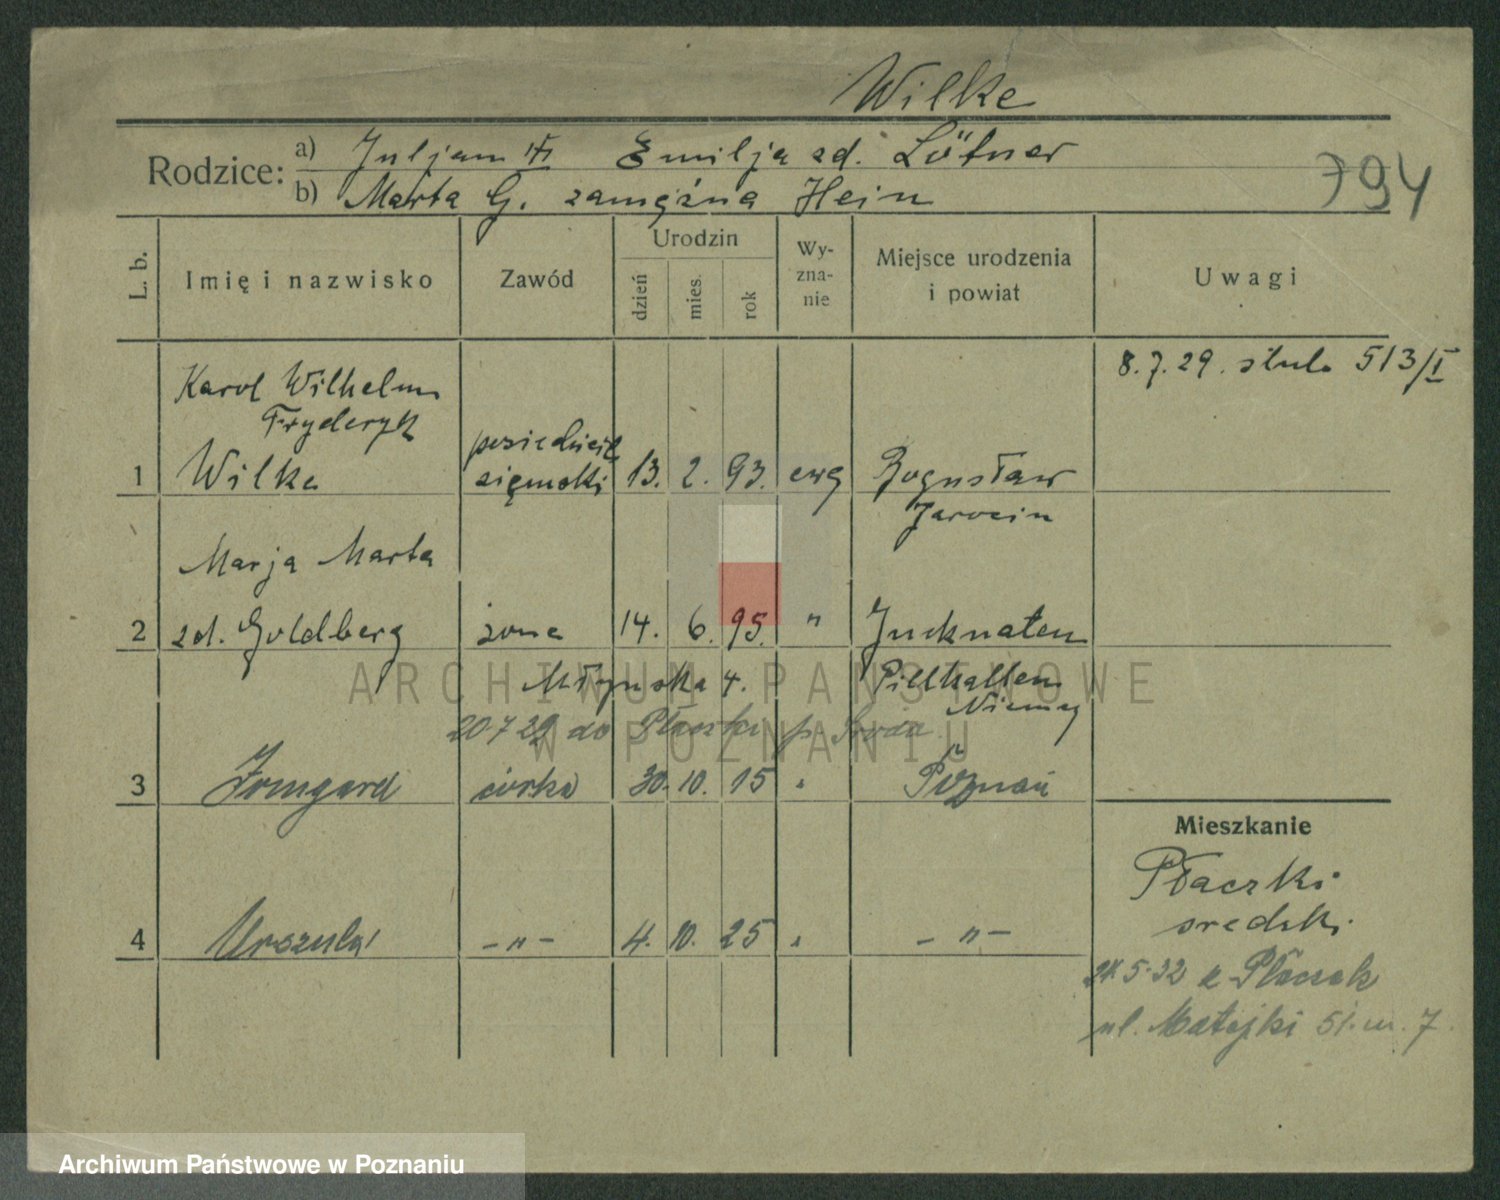 Wilke
Rodzice: a) Juljam W Emilja zd. Lötner
b) Marta G. zamężna Hein
794
L. b. Imię i nazwisko Zawód Urodzin dzień mies. rok Wyznanie Miejsce urodzenia i powiat Uwagi
8. 7. 29. 513/I
Karol Wilhelm
Fryderyk
1 Wilke posiedziciel ziemski 13. 2. 93. ewg Bogusław
Jarocin
Marja Marta
2 zd. Goldberg żona 14. 6. 95. " Jucknaten
Młyńska 4. Pillkallen
Niemcy
20 7 29 do Płaczki p. Środa
3 Irmgard córka 30. 10. 15 " Poznań
Mieszkanie
Płaczki
średzki.
4 Urszula - " - 4. 10. 25 " - " -
24.5.32 z Płaczek
ul. Matejki 51. m. 7
ARCHIWUM PAŃSTWOWE
W POZNANIU
Archiwum Państwowe w Poznaniu